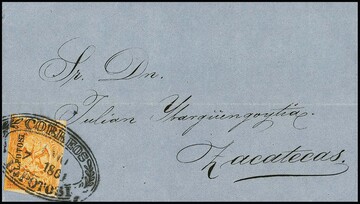 Sr. Dn.
Julian Ybargüengoytia
Zacatecas.
CORREOS
S. L. POTOSI
POTOSI